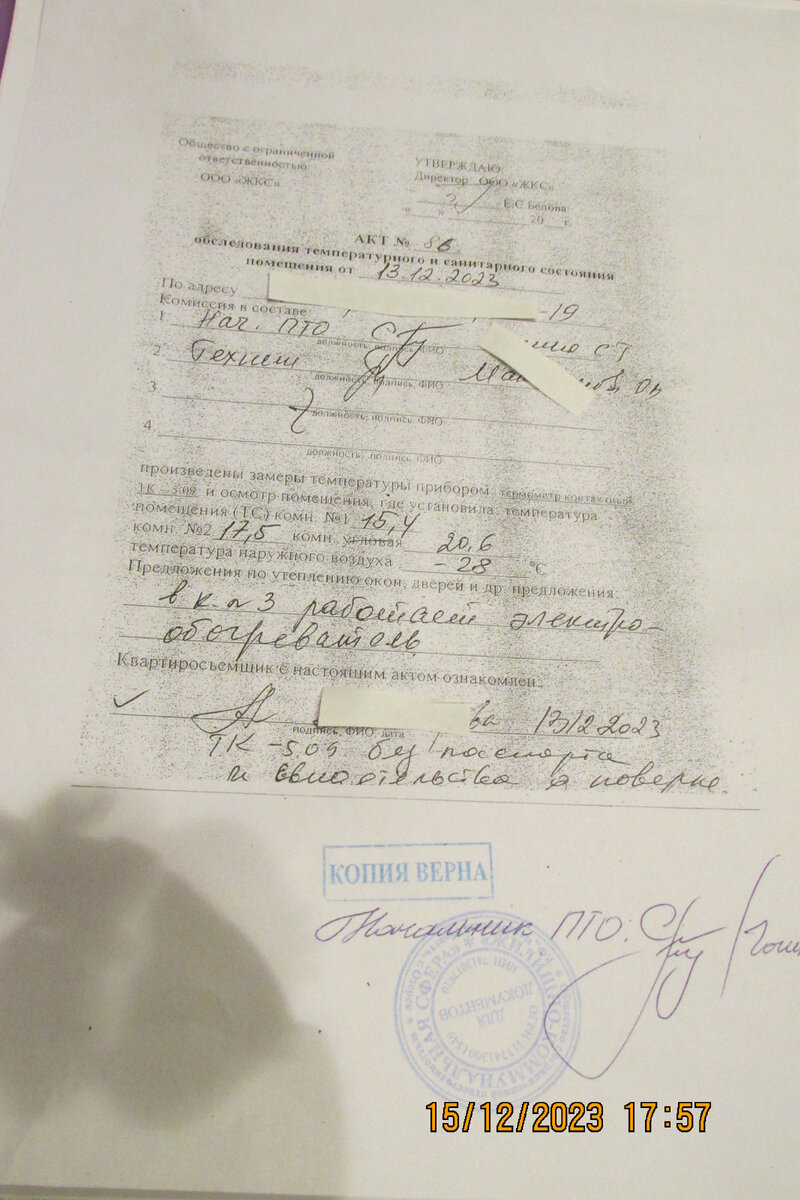 Общество с ограниченной
ответственностью
ООО «ЖКС»
УТВЕРЖДАЮ
Директор ООО «ЖКС»
Е.С Белова
« » 20 г.
АКТ № 86
обследования температурного и санитарного состояния
помещения от 13.12.2023
По адресу -19
Комиссия в составе:
1. Нач. ПТО
должность, подпись, ФИО
2. Техник
должность, подпись, ФИО
3.
должность, подпись, ФИО
4.
должность, подпись, ФИО
произведены замеры температуры прибором: термометр контактный
ТК – 5.09 и осмотр помещения, где установила: температура
помещения (ТС) комн. №1 15,4
комн. №2 17,5 комн. угловая 20,6
температура наружного воздуха - 28 °С
Предложения по утеплению окон, дверей и др. предложения:
в к. № 3 работает электро-
обогреватель
Квартиросъемщик с настоящим актом ознакомлен.
ва 13.12.2023
подпись, ФИО, дата
ТК -5.09 без паспорта
и свидетельства о поверке.
КОПИЯ ВЕРНА
Начальник ПТО:
«ЖИЛИЩНО-КОММУНАЛЬНАЯ СФЕРА»
ДЛЯ
ДОКУМЕНТОВ
15/12/2023 17:57